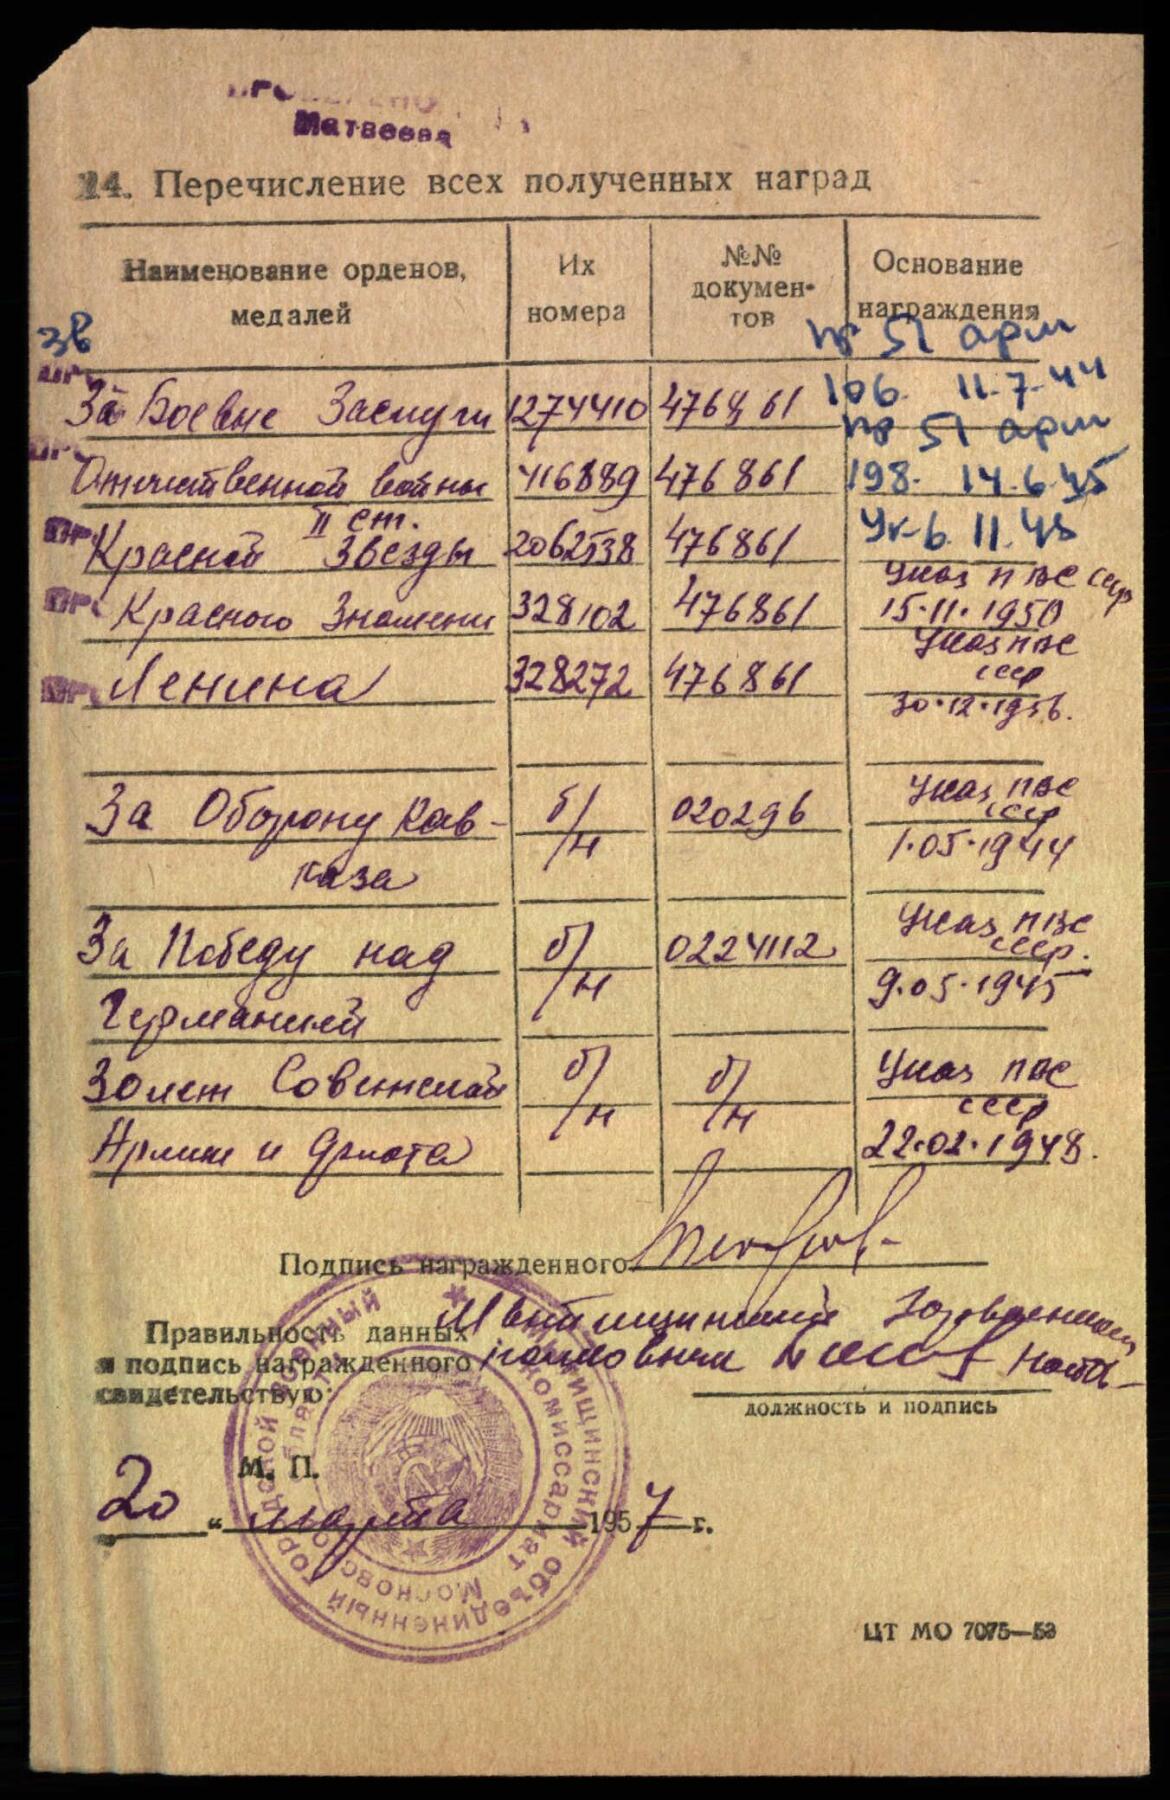 ПРОВЕРЕНО
Матвеева
14. Перечисление всех полученных наград
Наименование орденов, медалей
Их номера
№№ документов
Основание награждения
зв
За Боевые Заслуги 1274410 476461 пр 51 арм 106. 11.7.44
Отечественной войны II ст. 416889 476861 пр 51 арм 198. 14.6.45
Красной Звезды 2062538 476861 Ук-6. 11.45
Красного Знамени 328102 476861 Указ ПВС СССР 15.11.1950
Ленина 328272 476861 Указ ПВС СССР 30.12.1956.
За Оборону Кав-
каза б/н 020296 Указ ПВС СССР 1.05.1944
За Победу над
Германией б/н 0224112 Указ ПВС СССР. 9.05.1945
30 лет Советской
Армии и Флота б/н б/н Указ ПВС СССР 22.02.1948.
Подпись награжденного
Правильность данных
и подпись награжденного
свидетельствую:
Мытищинский Горвоенком
полковник
должность и подпись
М. П.
20 „ марта 1957 г.
Мытищинский объединенный городской военный комиссариат
Московской области
ЦТ МО 7075—53